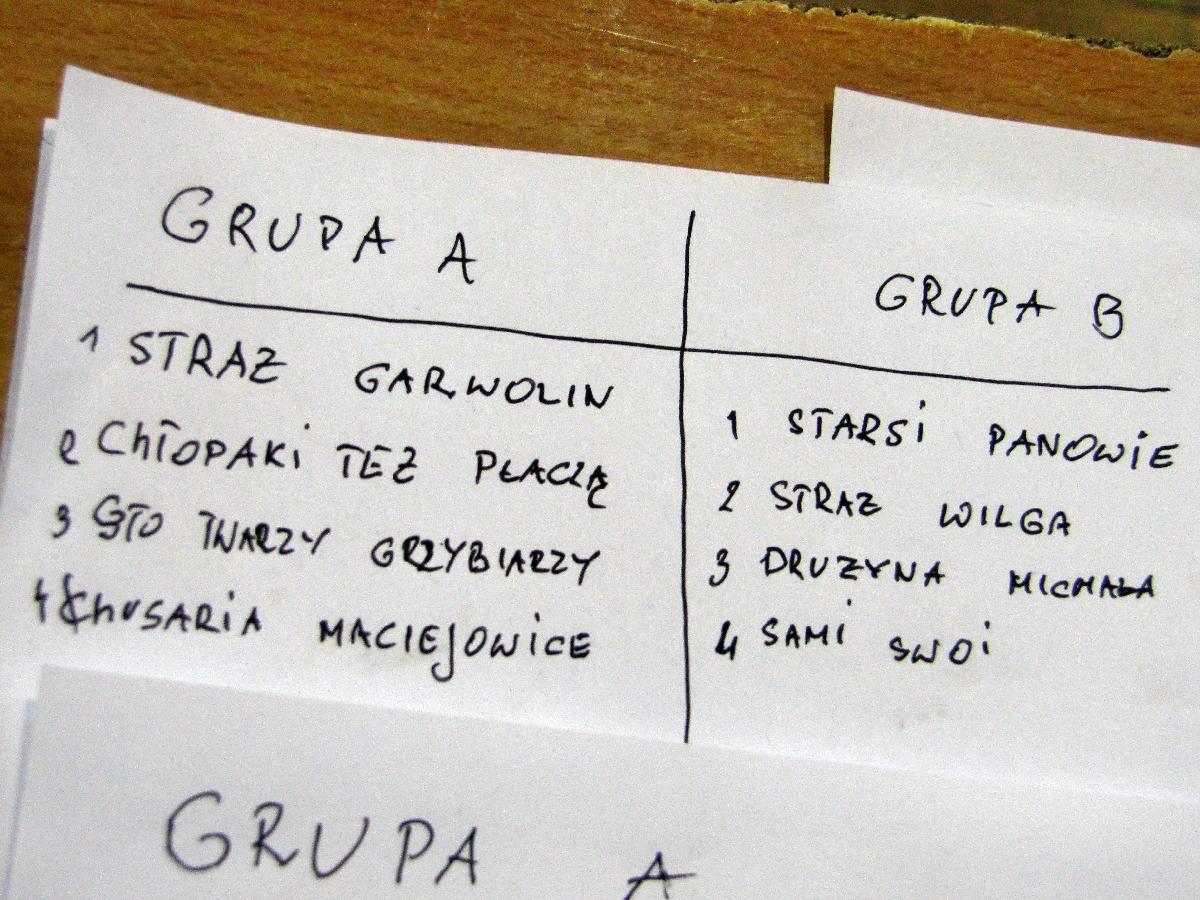 GRUPA A
1 STRAZ GARWOLIN
2 ChŁOPAKi TEŻ PŁACZĄ
3 STO TWARZY GRZYBIARZY
4 ChUSARiA MACIEJOWiCE
GRUPA B
1 STARSi PANOWiE
2 STRAZ WILGA
3 DRUZYNA MICHAŁA
4 SAMi SWOi
GRUPA A